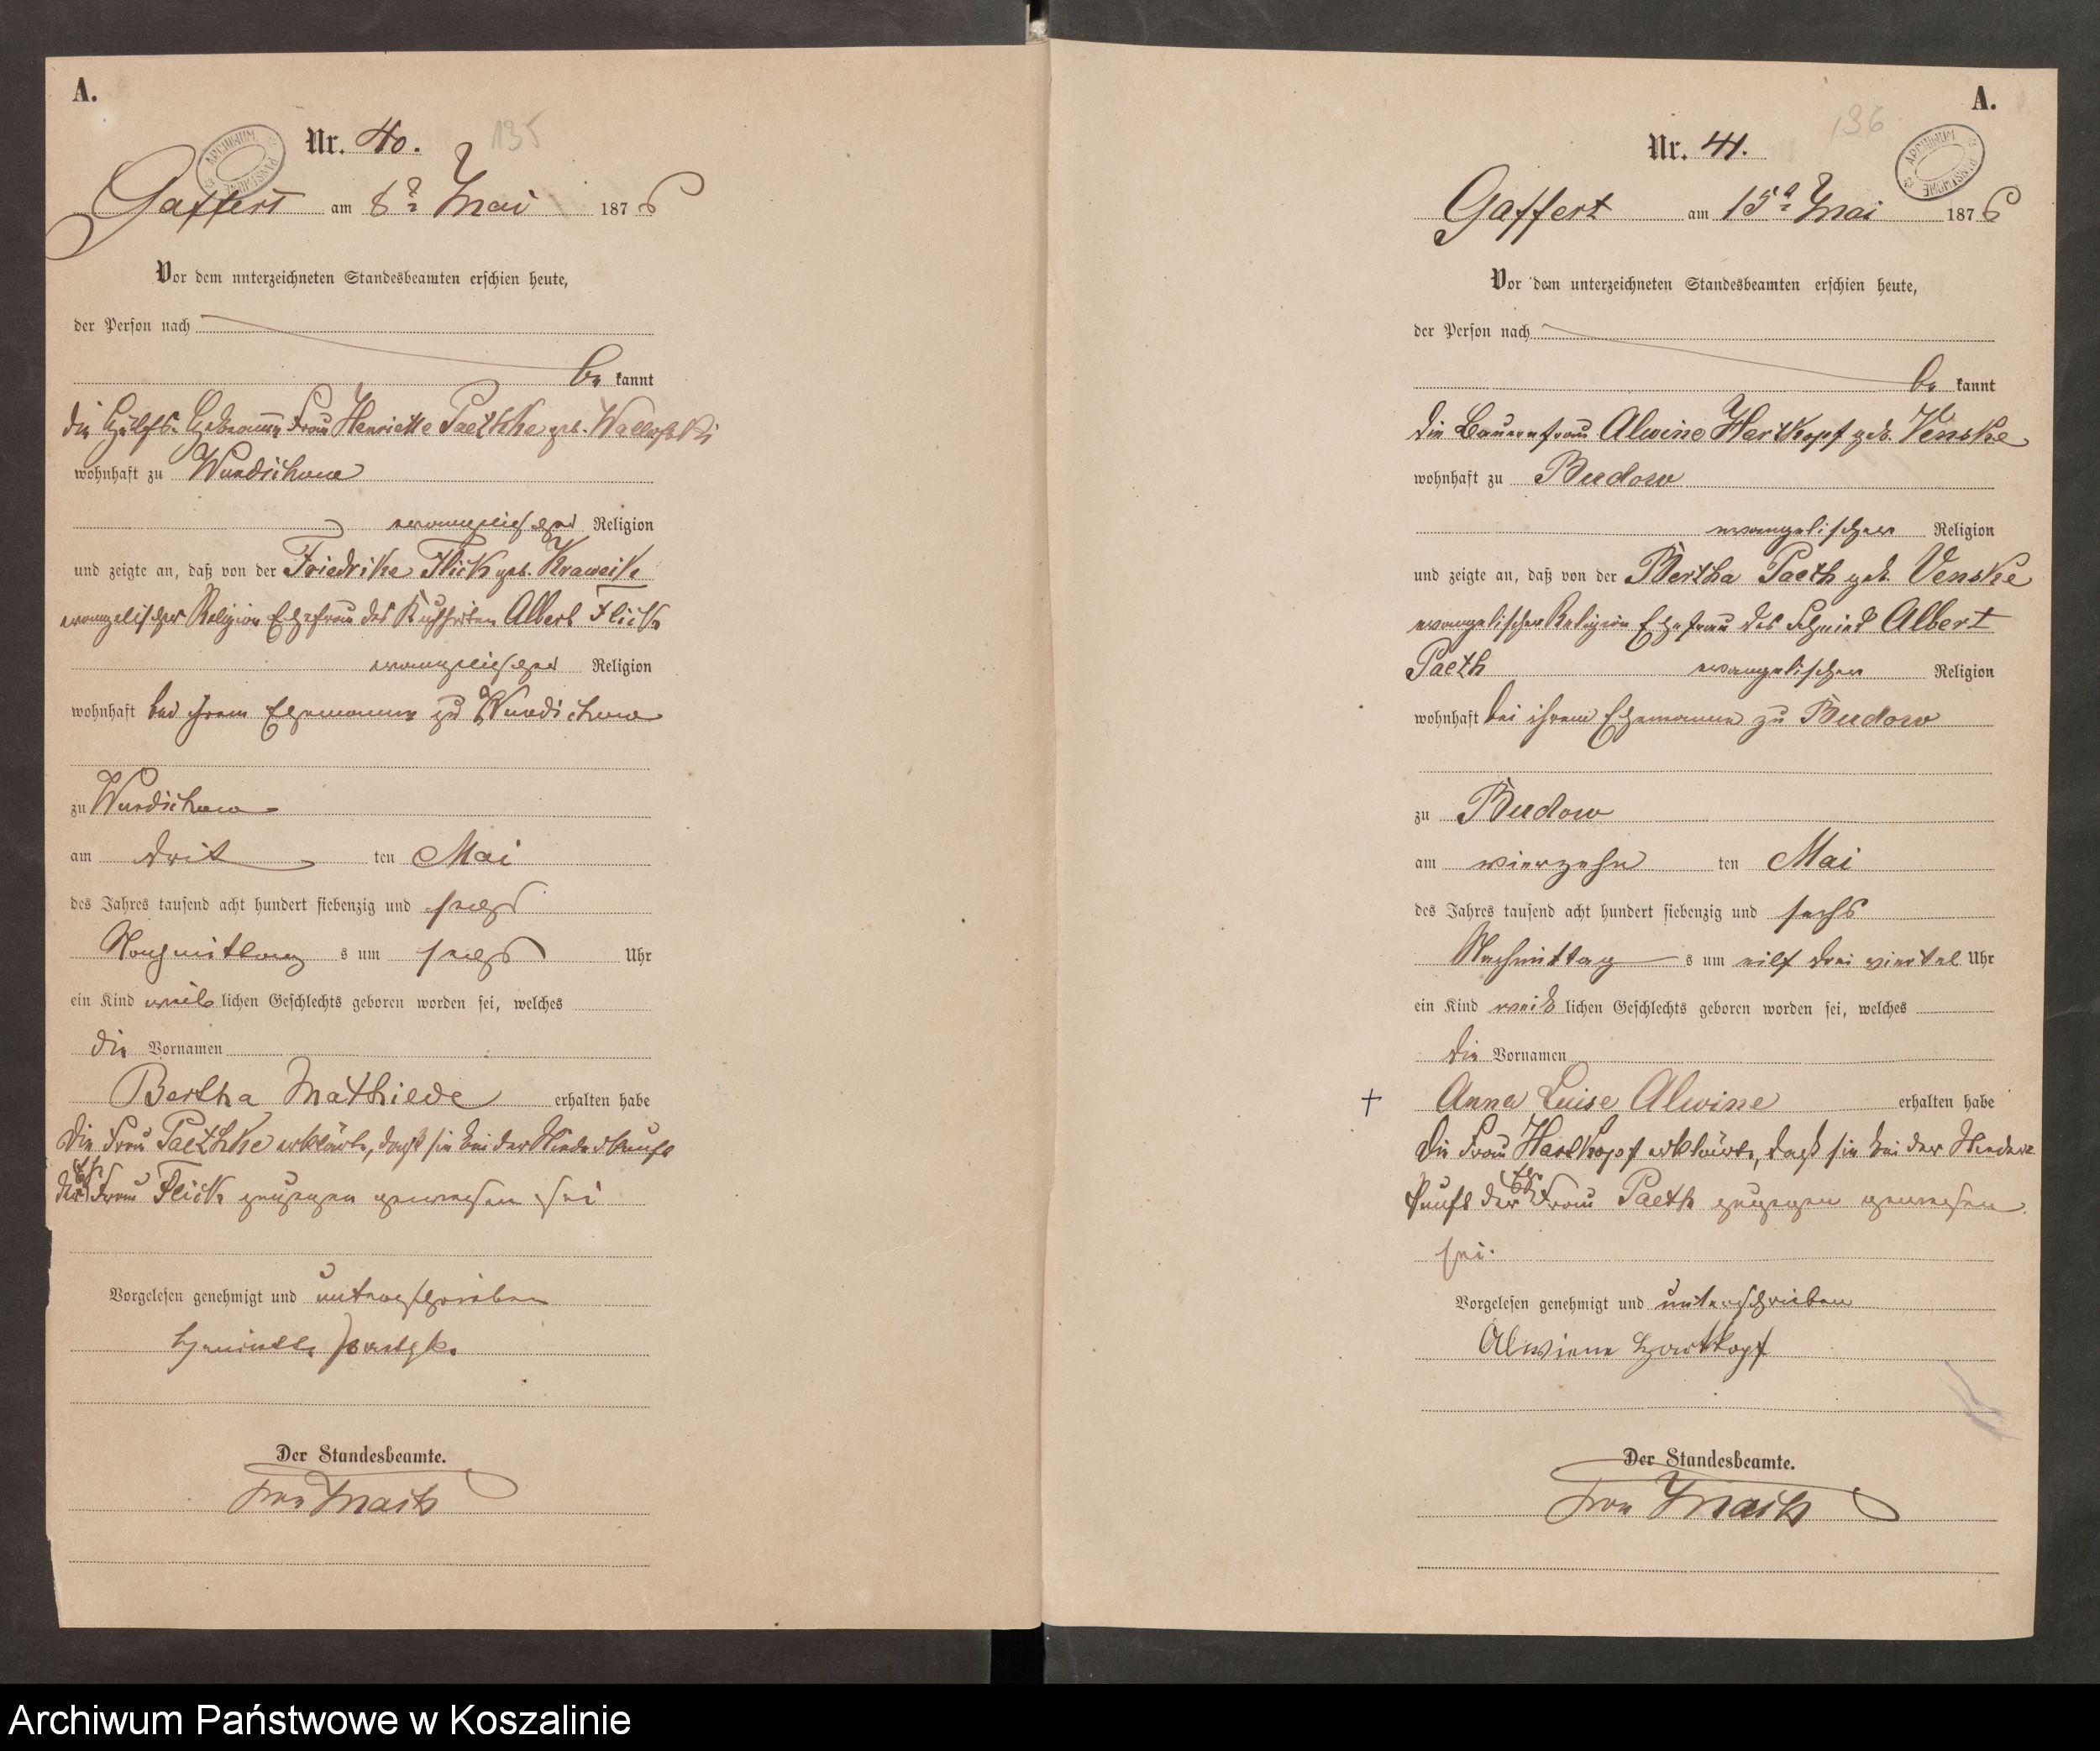 A.
135
Nr. 40.
ARCHIWUM PAŃSTWOWE
Gaffert am 8ᵗ Mai 1876
Vor dem unterzeichneten Standesbeamten erschien heute,
der Person nach
be kannt
die Hülfs-Hebamme Frau Henriette Paethke geb.
wohnhaft zu Wundichow
evangelischer Religion
und zeigte an, daß von der Friedrike Flick geb.
evangelischer Religion Ehefrau des Albert Flick
evangelischer Religion
wohnhaft bei ihrem Ehemanne zu Wundichow
zu Wundichow
am drit ten Mai
des Jahres tausend acht hundert siebenzig und sechs
Nachmittag s um sechs Uhr
ein Kind weib lichen Geschlechts geboren worden sei, welches
die Vornamen
Bertha Mathilde erhalten habe
Die Frau Paethke erklärte, daß sie bei der Niederkunft
der Frau Flick zugegen gewesen sei
Vorgelesen genehmigt und unterschrieben
Henriette
Der Standesbeamte.
von
A.
136
Nr. 41.
ARCHIWUM PAŃSTWOWE
Gaffert am 15ᵗ Mai 1876
Vor dem unterzeichneten Standesbeamten erschien heute,
der Person nach
be kannt
die Bauernfrau Alwine Hartkopf geb. Venske
wohnhaft zu Budow
evangelischer Religion
und zeigte an, daß von der Bertha Paeth geb. Venske
evangelischer Religion Ehefrau des Schmied Albert
Paeth evangelischer Religion
wohnhaft bei ihrem Ehemanne zu Budow
zu Budow
am vierzehn ten Mai
des Jahres tausend acht hundert siebenzig und sechs
Nachmittag s um eilf drei viertel Uhr
ein Kind weib lichen Geschlechts geboren worden sei, welches
die Vornamen
Anna Luise Alwine erhalten habe
Die Frau Hartkopf erklärte, daß sie bei der Nieder=
kunft der Frau Paeth zugegen gewesen
sei.
Vorgelesen genehmigt und unterschrieben
Alwiene Hartkopf
Der Standesbeamte.
von
Archiwum Państwowe w Koszalinie